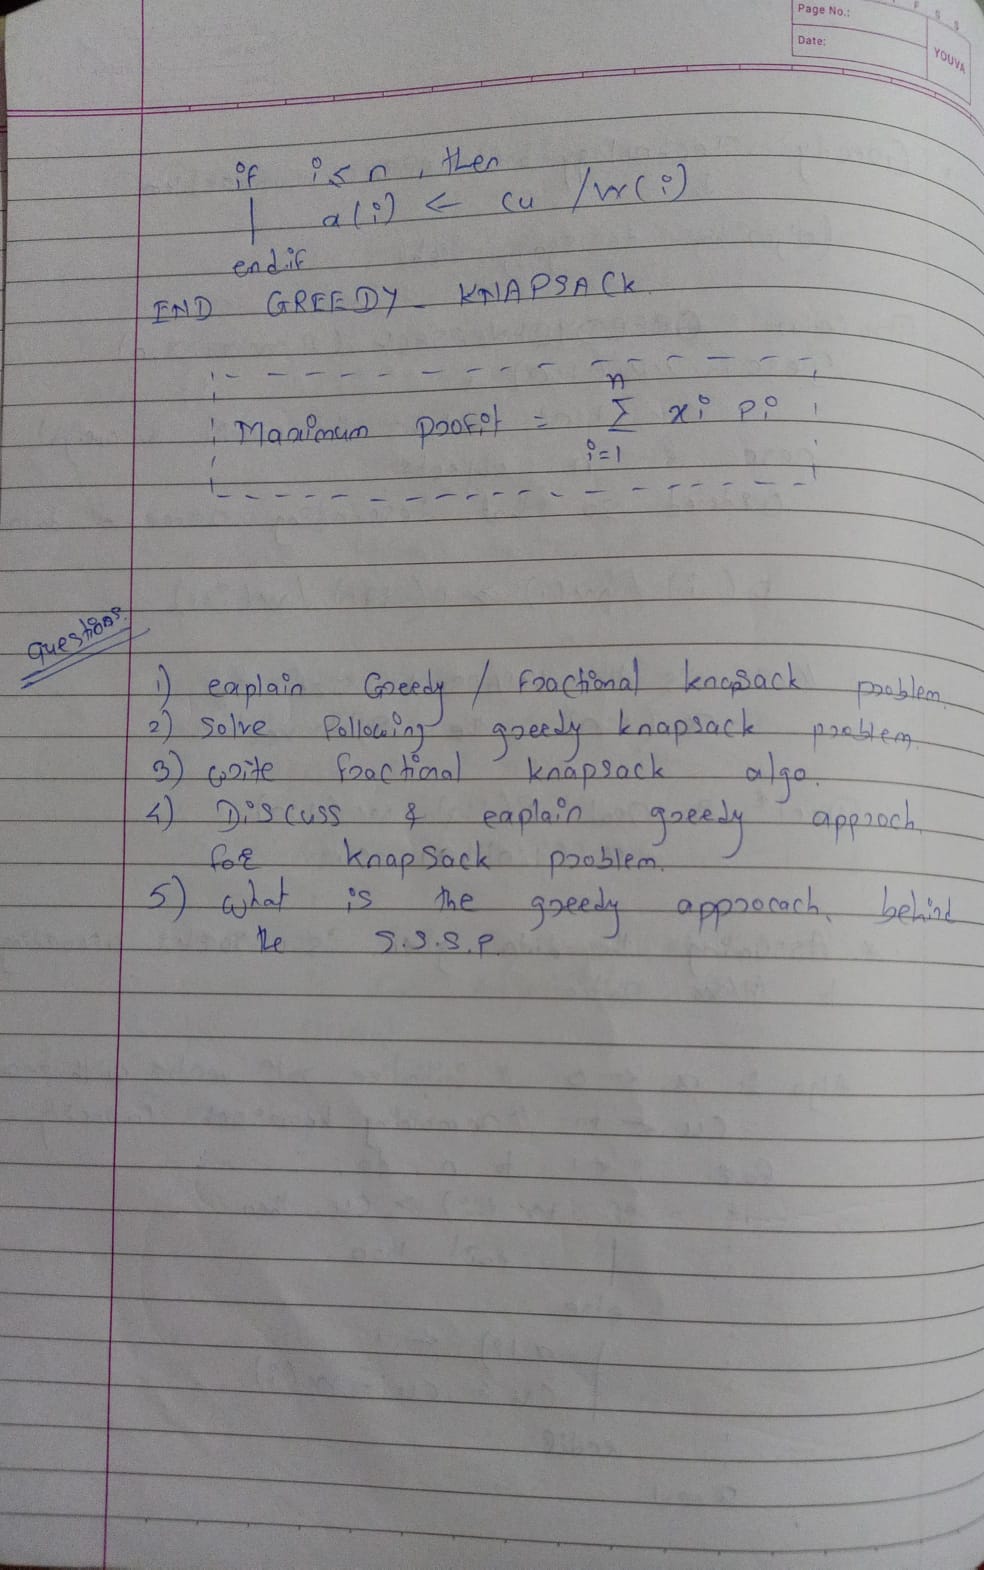 Page No.:
Date:
YOUVA
if i ≤ n, then
x(i) ← cu / w(i)
endif
END GREEDY_KNAPSACK
Maximum profit = n Σ i=1 xi pi
Questions.
1) explain Greedy / Fractional knapsack problem.
2) Solve following greedy knapsack problem
3) write fractional knapsack algo.
4) Discuss & explain greedy approch
for knapsack problem.
5) what is the greedy approrach. behind
the S.S.S.P.